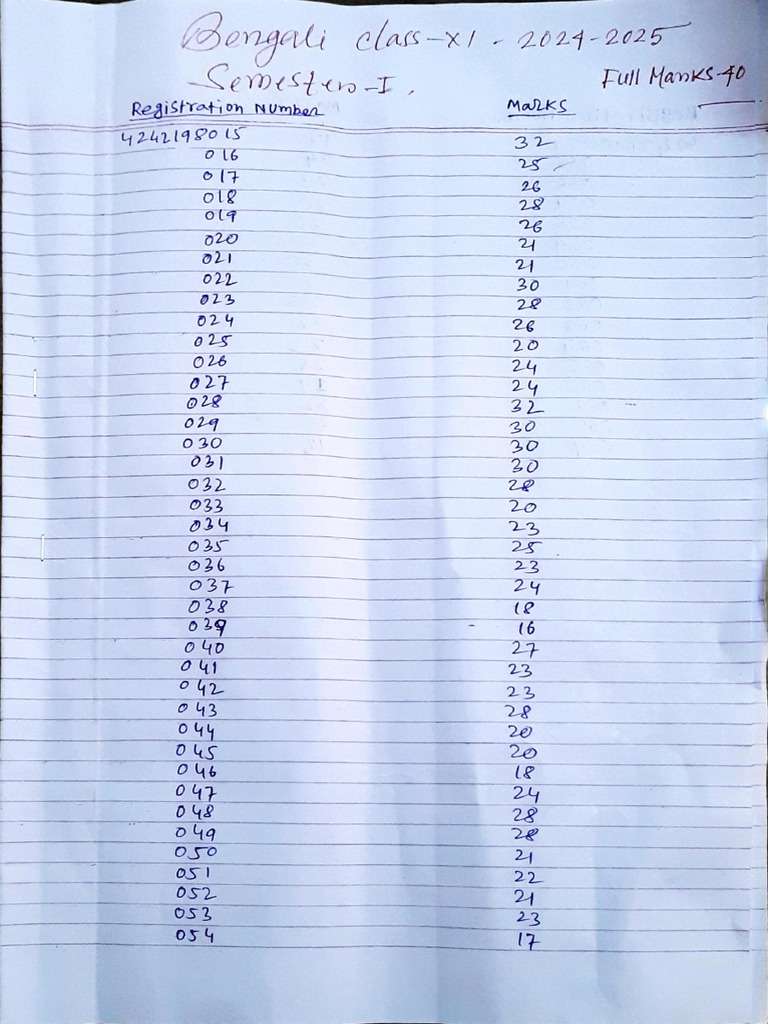 Bengali class-XI - 2024-2025
Semester-I.
Full Marks-40
Registration Number Marks
4242198015 32
016 25
017 26
018 28
019 26
020 21
021 21
022 30
023 28
024 26
025 20
026 24
027 24
028 32
029 30
030 30
031 30
032 28
033 20
034 23
035 25
036 23
037 24
038 18
039 16
040 27
041 23
042 23
043 28
044 20
045 20
046 18
047 24
048 28
049 28
050 21
051 22
052 21
053 23
054 17